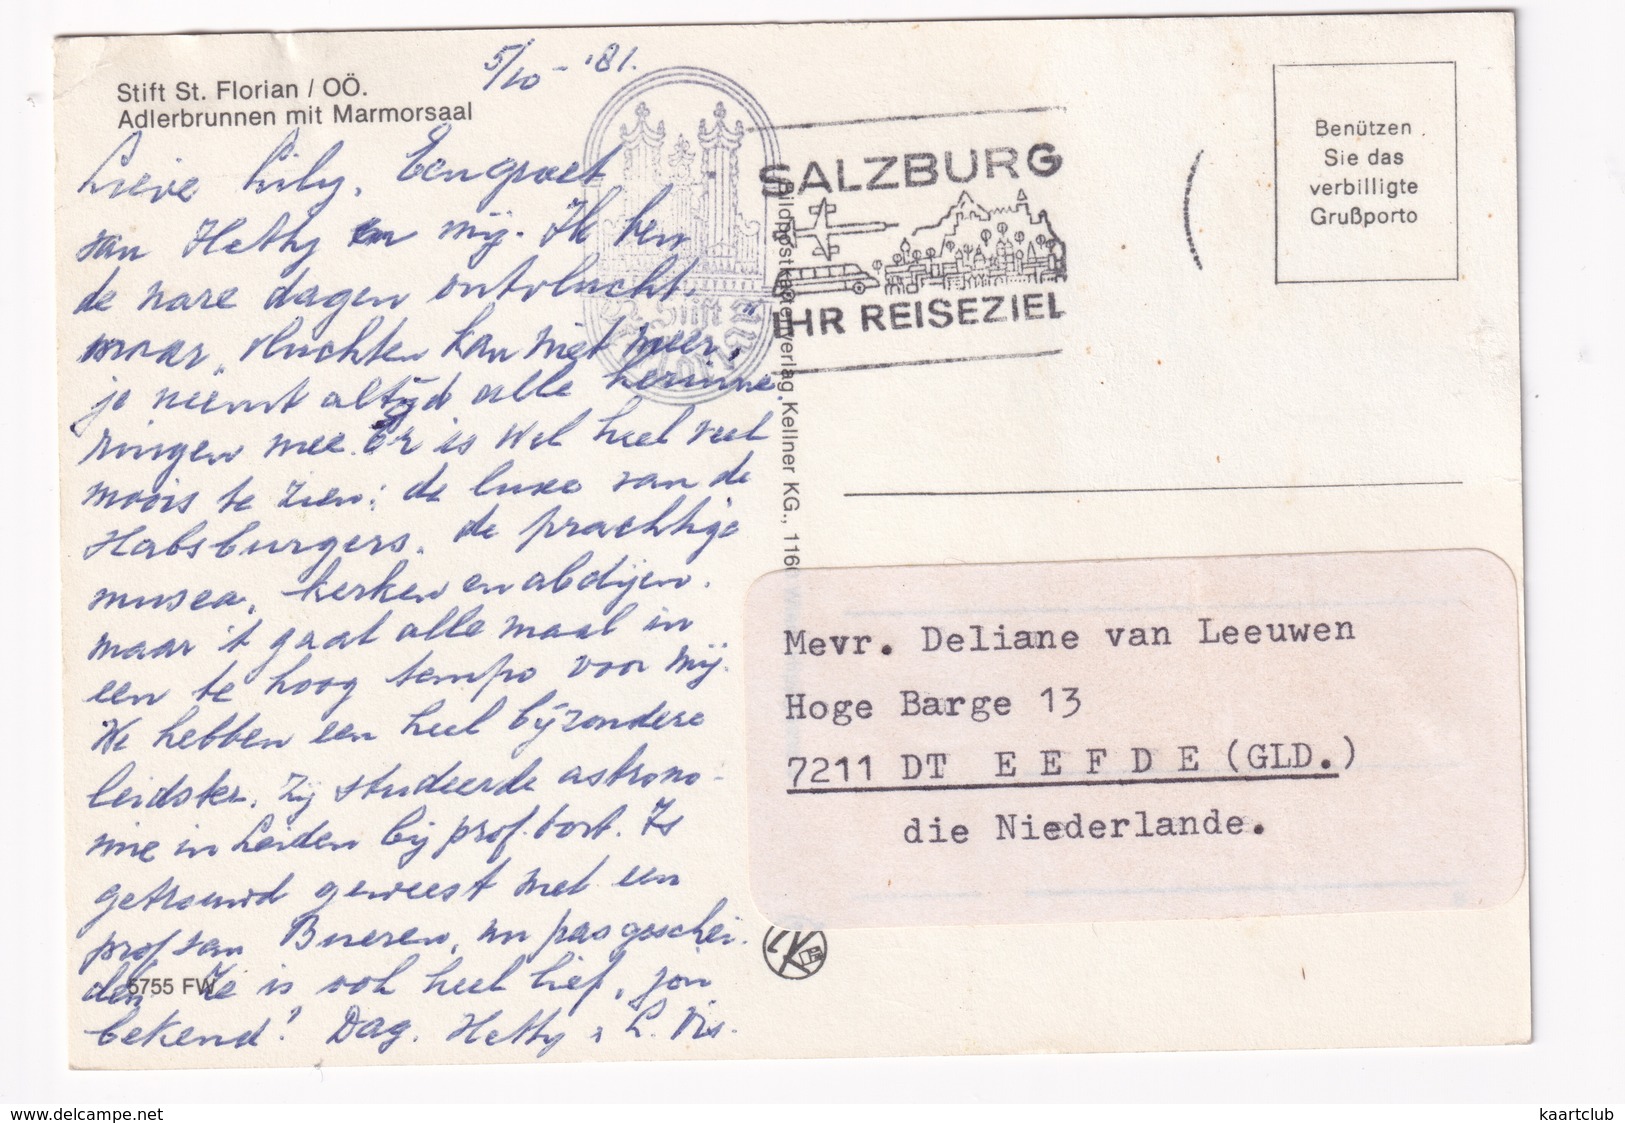 5/10 - '81.
Stift St. Florian / OÖ.
Adlerbrunnen mit Marmorsaal
Lieve Lily, Een groet
van Hetty en mij. Ik ben
de nare dagen ontvlucht,
maar, vluchten kan niet meer,
je neemt altijd alle herinne
ringen mee. Er is wel heel veel
moois te zien: de luxe van de
Habsburgers, de prachtige
musea, kerken en abdijen.
maar 't gaat allemaal in
een te hoog tempo voor mij.
We hebben een heel bijzondere
leidster. Zij studeerde astrono-
mie in Leiden bij prof. Oort. Is
getrouwd geweest met een
prof van Bueren, nu pas geschei-
den. Ze is ook heel lief,
bekend? Dag. Hetty L. Vis.
5755 FW
Stift
SALZBURG
IHR REISEZIEL
Bildpostkartenverlag Kellner KG., 116
Benützen
Sie das
verbilligte
Grußporto
Mevr. Deliane van Leeuwen
Hoge Barge 13
7211 DT E E F D E (GLD.)
die Niederlande.
delcampe.net
kaartclub